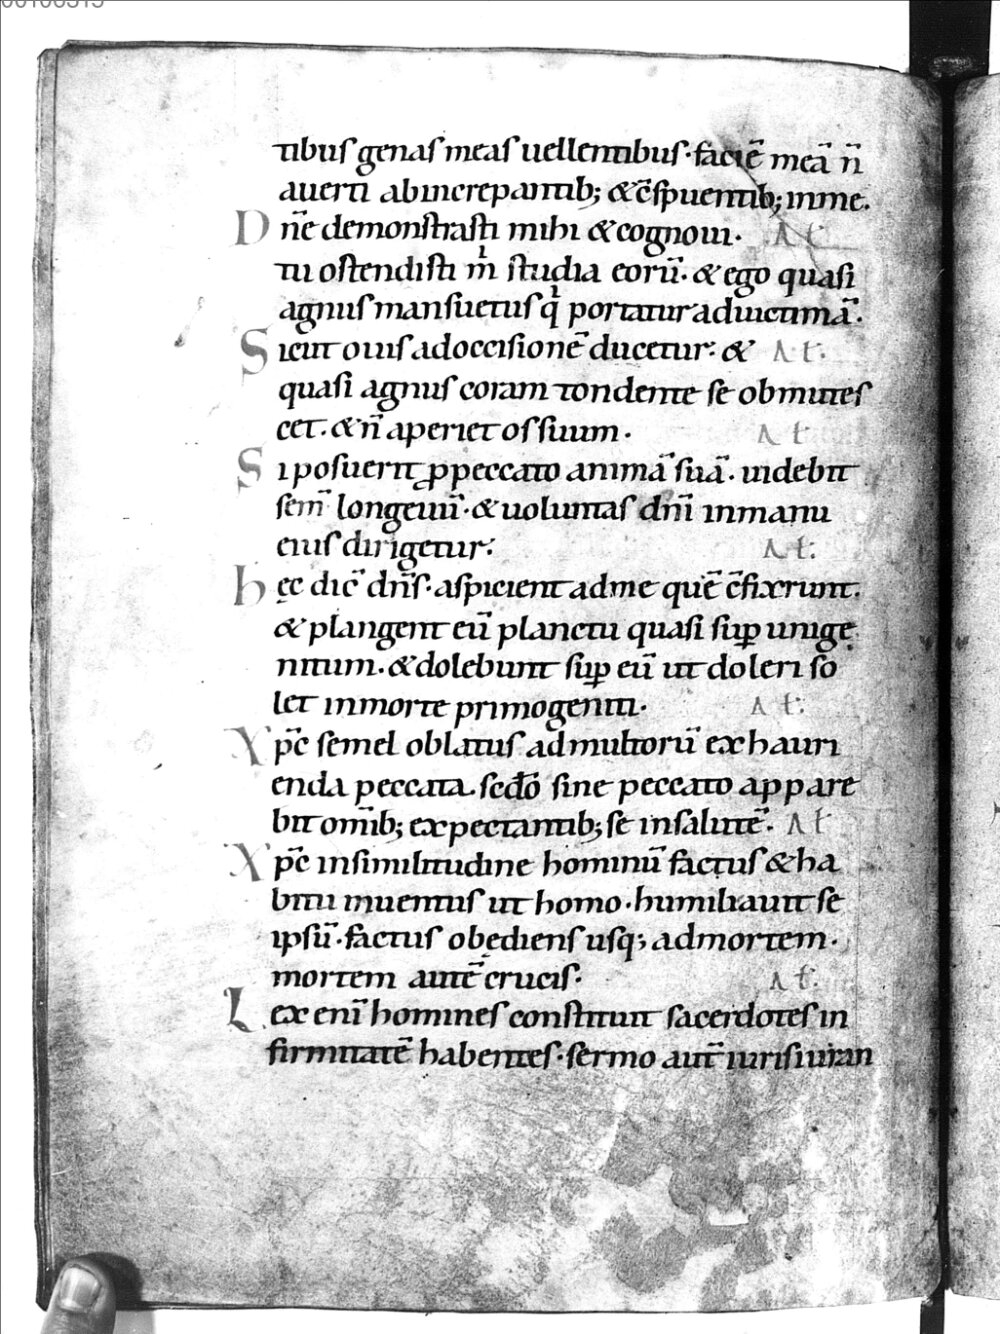 tibuſ genaſ meaſ uellentibuſ· faciē meā n̄
auerti abincrepantib; & c̄ſpuentib; inme.
Dn̄e demonſtraſti mihi & cognoui· A t̄
tu oſtendiſti ṁ ſtudia eorū· & ego quaſi
agnuſ manſuetuſ q̇ portatur aduictimā·
Sicut ouiſ adocciſionē ducetur· & A· t̄·
quaſi agnuſ coram tondente ſe obmuteſ
cet· & n̄ aperiet oſ ſuum· A t̄
Si poſuerit ꝓpeccato animā ſuā· uidebit
ſem̄ longeuū· & uoluntaſ dn̄i inmanu
eiuſ dirigetur· A t̄:
hęc dic̄ dn̄ſ· aſpicient adme quē c̄fixrunt.
& plangent eū planctu quaſi ſuꝑ unige
nitum· & dolebunt ſuꝑ eū ut doleri ſo
let inmorte primogeniti· A t̄:
Xp̄c ſemel oblatuſ admultorū exhauri
enda peccata· ſcd̄o ſine peccato appare
bit om̄ib; expectantib; ſe inſalutē· A t̄
Xp̄c inſimilitudine hominū factuſ & ha
bitu inuentuſ ut homo· humiliauit ſe
ipſū· factuſ obedienſ uſq; admortem·
mortem autē cruciſ· A t̄·
Lex eni̅ homineſ conſtituit ſacerdoteſ in
firmitatē habenteſ· ſermo aut̄ iuriſiuran